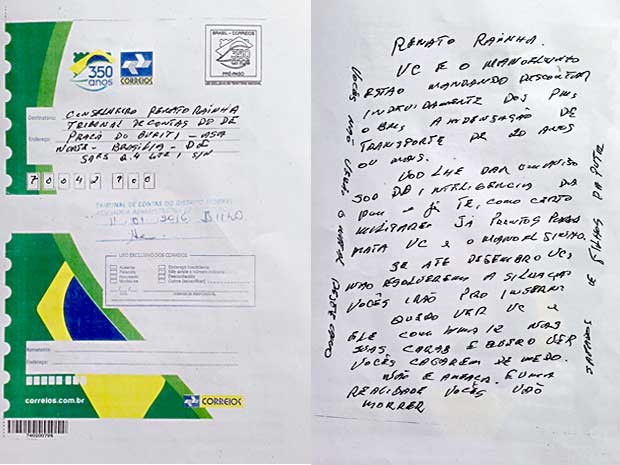 350
anos
CORREIOS
BRASIL - CORREIOS
350
ANOS
PRÉ-PAGO
Destinatário: CONSELHEIRO RENATO RAINHA
TRIBUNAL DE CONTAS DO DF
Endereço: PRAÇA DO BURITI - ASA
NORTE - BRASÍLIA - DF
70042900
TRIBUNAL DE CONTAS DO DISTRITO FEDERAL
USO EXCLUSIVO DOS CORREIOS
Ausente
Falecido
Recusado
Mudou-se
Endereço insuficiente
Não existe o número indicado
Desconhecido
Outros (especificar)
Remetente:
Endereço:
correios.com.br
CORREIOS
RENATO RAINHA.
VC E O MANOELZINHO
ESTÃO MANDANDO DESCONTAR
INDEVIDAMENTE DOS PMS
TRANSPORTE DE 20 ANOS
OU MAIS.
VOU LHE DAR UM AVISO
SOU DA INTELIGENCIA DA
E JÁ TE, COMO CERTO
MILITARES JÁ PRONTOS PARA
MATA VC E O MANOELZINHO.
SE ATÉ DEZEMBRO VCS
NÃO RESOLVEREM A SITUAÇÃO
VOCÊS IRÃO PRO INFERNO
QUERO VER VC E
ELE COM UMA 12 NAS
SUAS CARAS E QUERO VER
VOCÊS CAGAREM DE MEDO.
NÃO E AMEAÇA. E UMA
REALIDADE VOCÊS VÃO
MORRER
VOCÊS NÃO VERÁ O NATAL DESSE ANO
SAFADOS E FILHOS DA PUTA